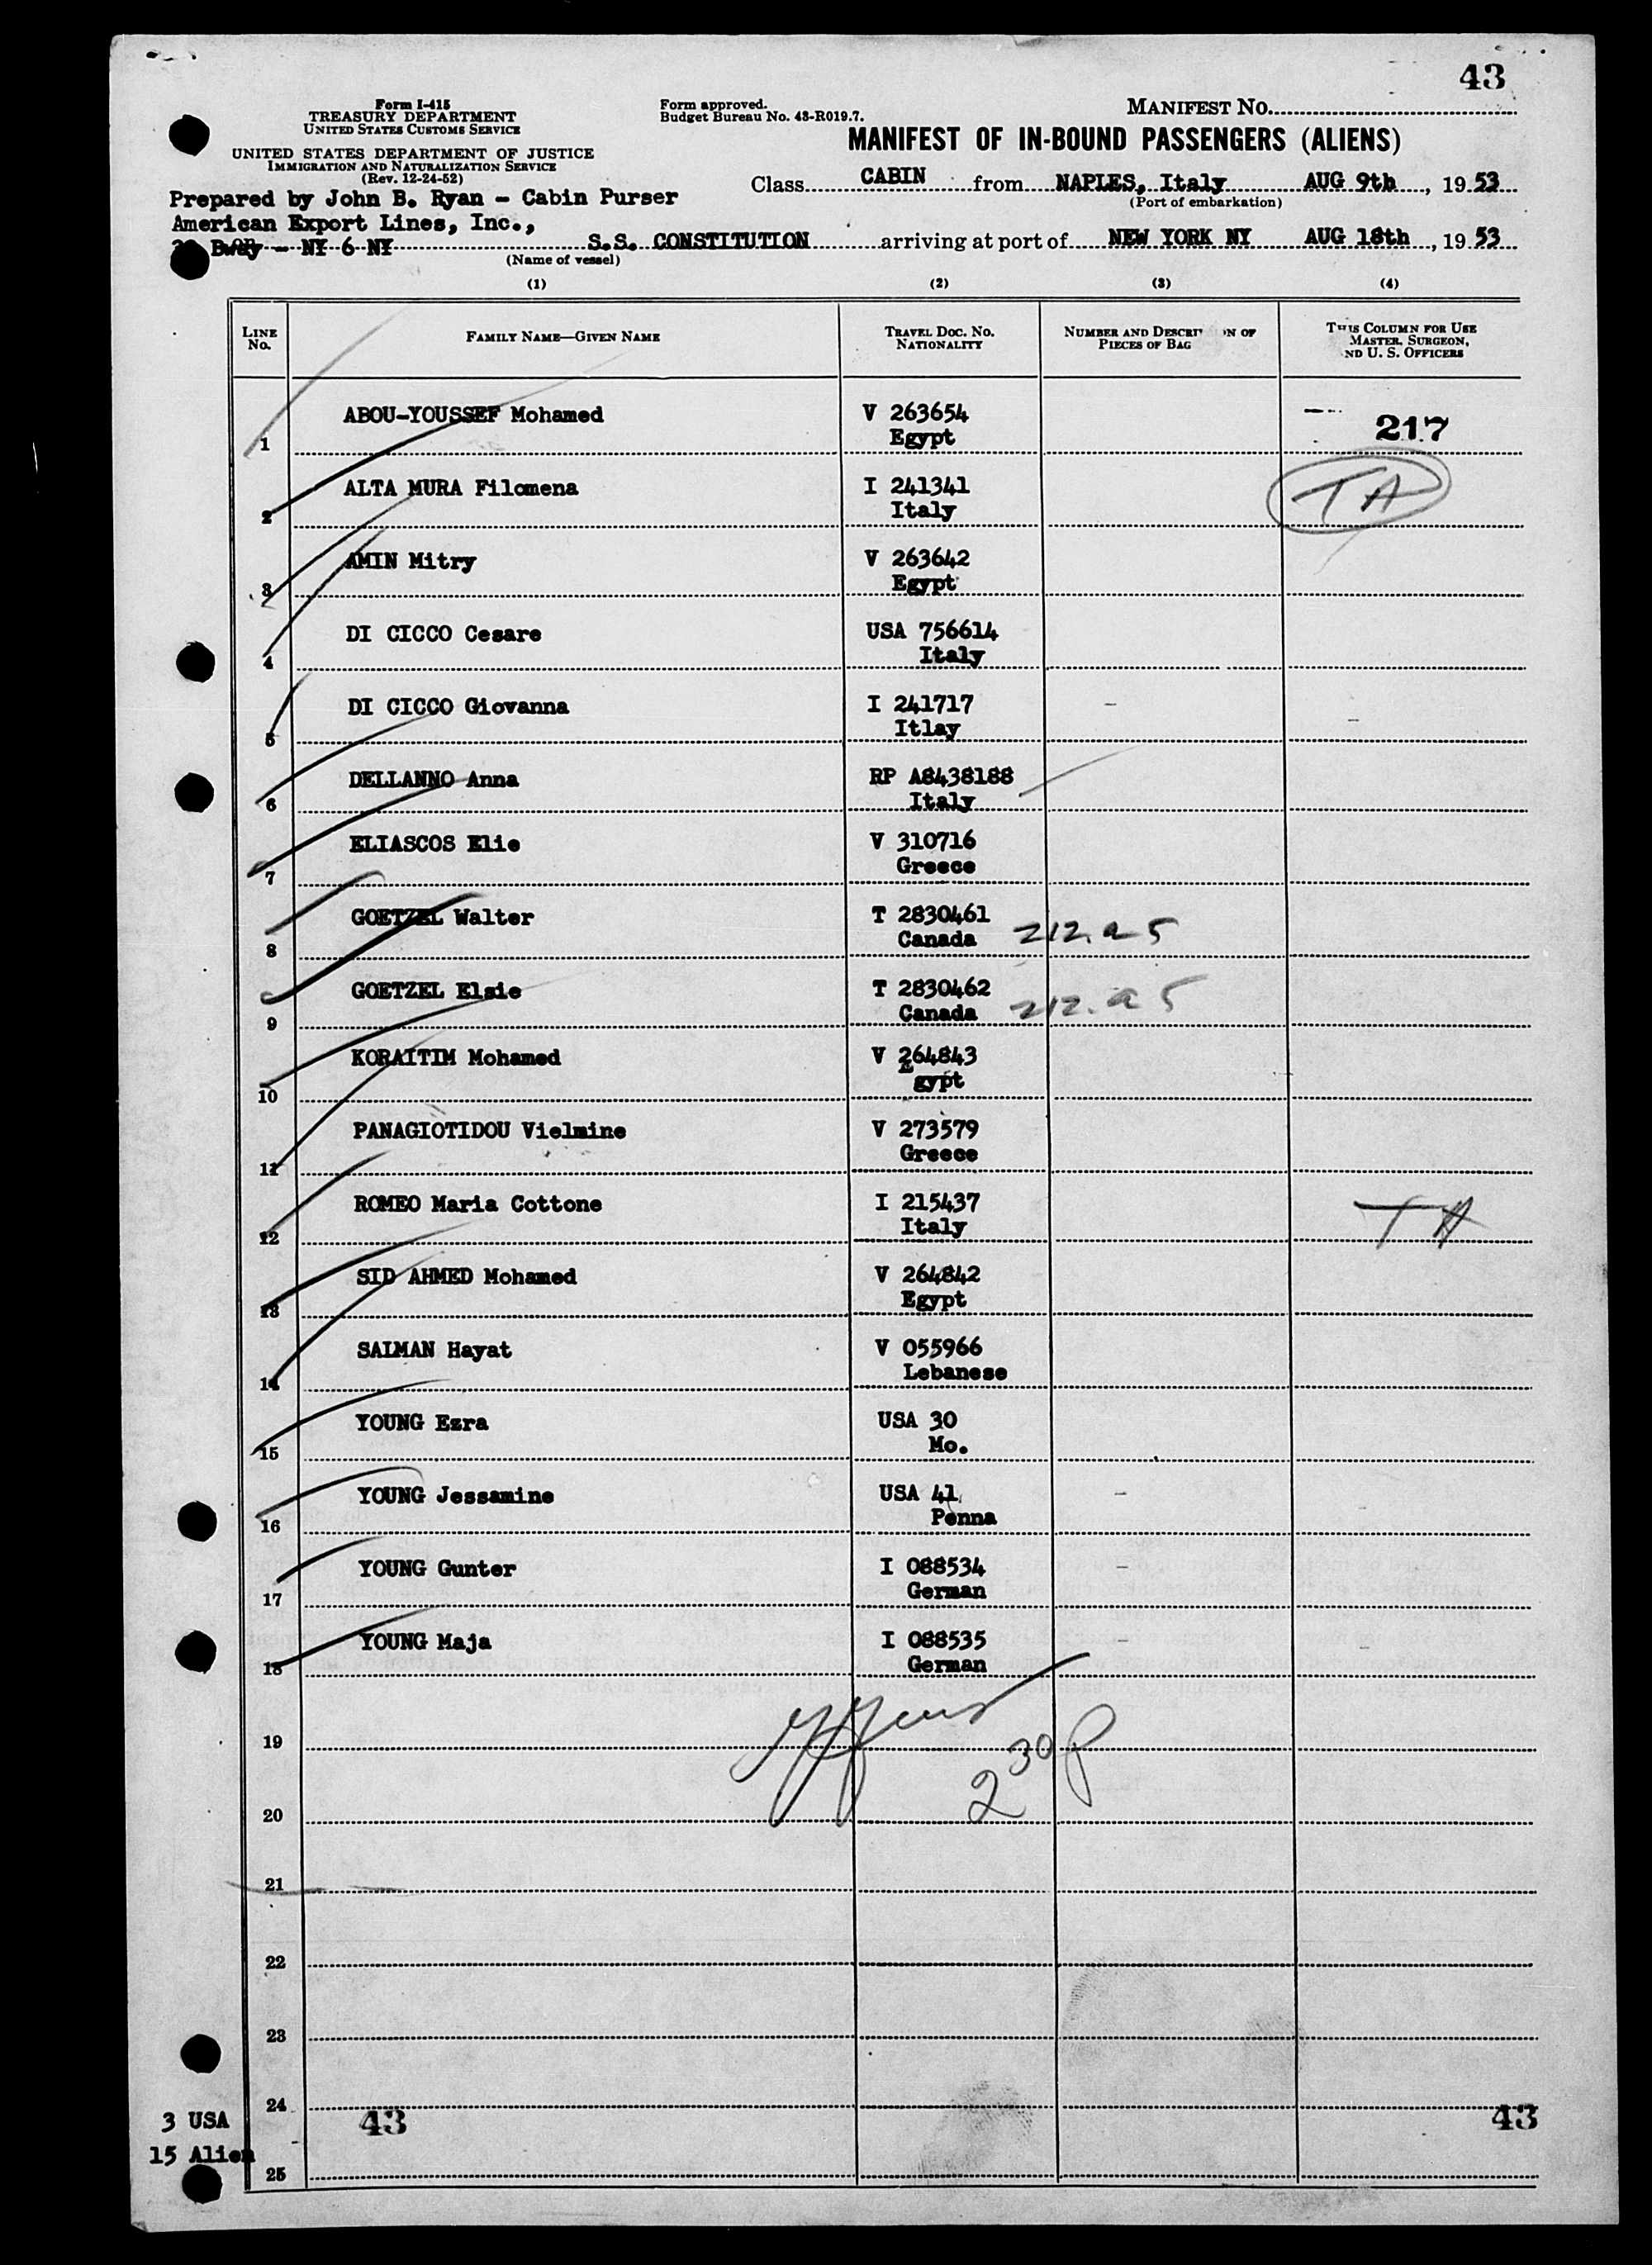 43
Form I-415
TREASURY DEPARTMENT
UNITED STATES CUSTOMS SERVICE
UNITED STATES DEPARTMENT OF JUSTICE
IMMIGRATION AND NATURALIZATION SERVICE
(Rev. 12-24-52)
Form approved.
Budget Bureau No. 43-R019.7.
MANIFEST No.
MANIFEST OF IN-BOUND PASSENGERS (ALIENS)
Class CABIN from NAPLES, Italy AUG 9th, 19 53
(Port of embarkation)
Prepared by John B. Ryan - Cabin Purser
American Export Lines, Inc.,
Bway - NY 6 NY S.S. CONSTITUTION arriving at port of NEW YORK NY AUG 18th, 19 53
(Name of vessel)
(1) (2) (3) (4)
LINE No. FAMILY NAME—GIVEN NAME TRAVEL DOC. NO. NATIONALITY NUMBER AND DESCRI ON OF PIECES OF BAG THIS COLUMN FOR USE MASTER, SURGEON, ND U. S. OFFICERS
1 ABOU-YOUSSEF Mohamed V 263654 217
Egypt
2 ALTA MURA Filomena I 241341 TA
Italy
3 AMIN Mitry V 263642
Egypt
4 DI CICCO Cesare USA 756614
Italy
5 DI CICCO Giovanna I 241717
Itlay
6 DELLANNO Anna RP A8438188
Italy
7 ELIASCOS Elie V 310716
Greece
8 GOETZEL Walter T 2830461
Canada 212.a 5
9 GOETZEL Elsie T 2830462
Canada 212.a 5
10 KORAITIM Mohamed V 264843
Egypt
11 PANAGIOTIDOU Vielmine V 273579
Greece
12 ROMEO Maria Cottone I 215437 TA
Italy
13 SID AHMED Mohamed V 264842
Egypt
14 SALMAN Hayat V 055966
Lebanese
15 YOUNG Ezra USA 30
Mo.
16 YOUNG Jessamine USA 41
Penna
17 YOUNG Gunter I 088534
German
18 YOUNG Maja I 088535
German
19
2 30 P
20
21
22
23
24
3 USA 43 43
15 Alien
25